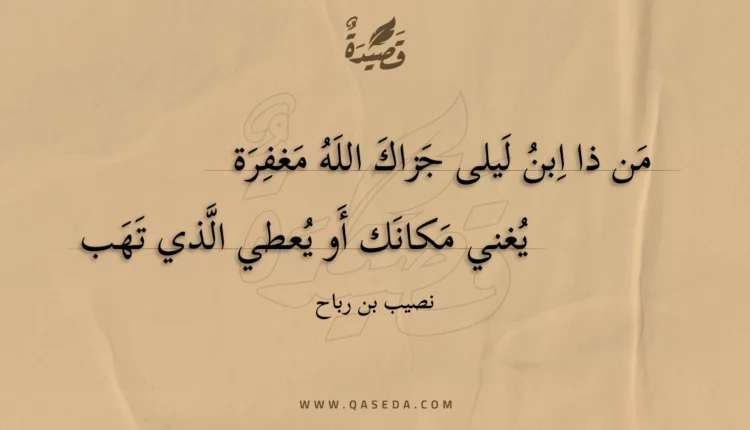 قَصِيدَةٌ
مَن ذا اِبنُ لَيلى جَزاكَ اللَهُ مَغفِرَة
يُغني مَكانَك أَو يُعطي الَّذي تَهَب
نصيب بن رباح
WWW.QASEDA.COM